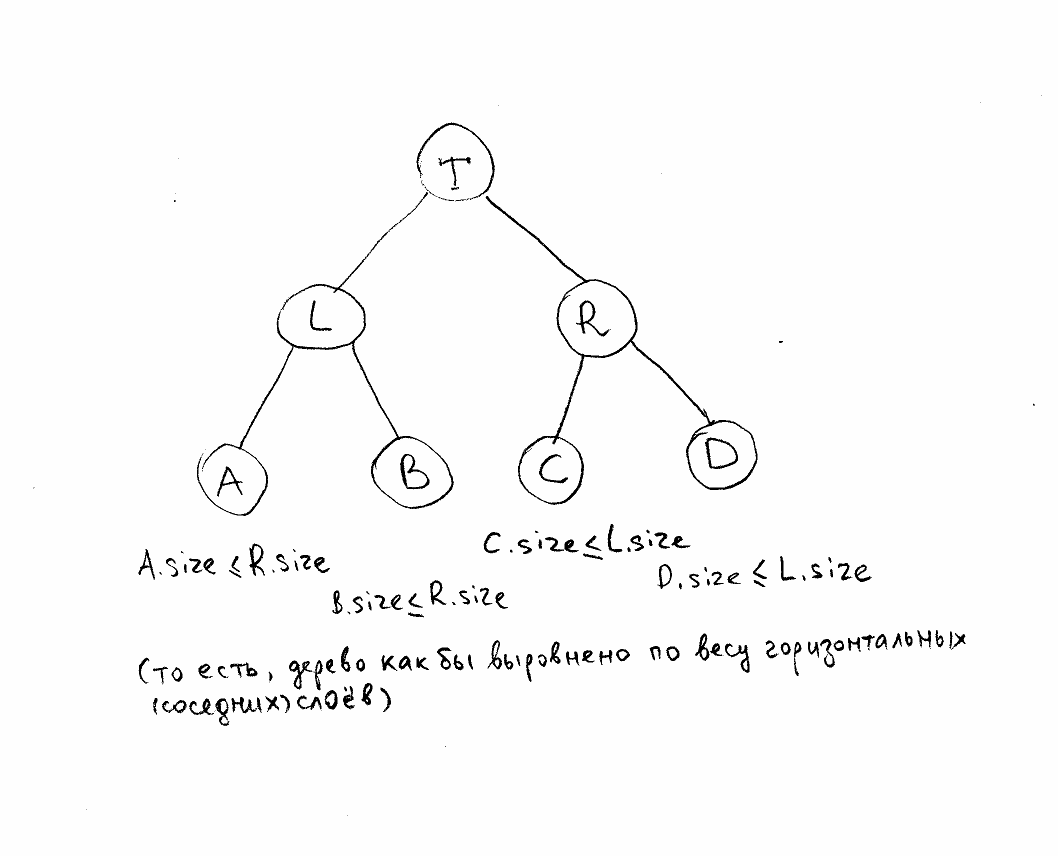 T
L
R
A
B
C
D
A.size ≤ R.size
C.size ≤ L.size
B.size ≤ R.size
D.size ≤ L.size
(то есть, дерево как бы выровнено по весу горизонтальных
(соседних) слоёв)